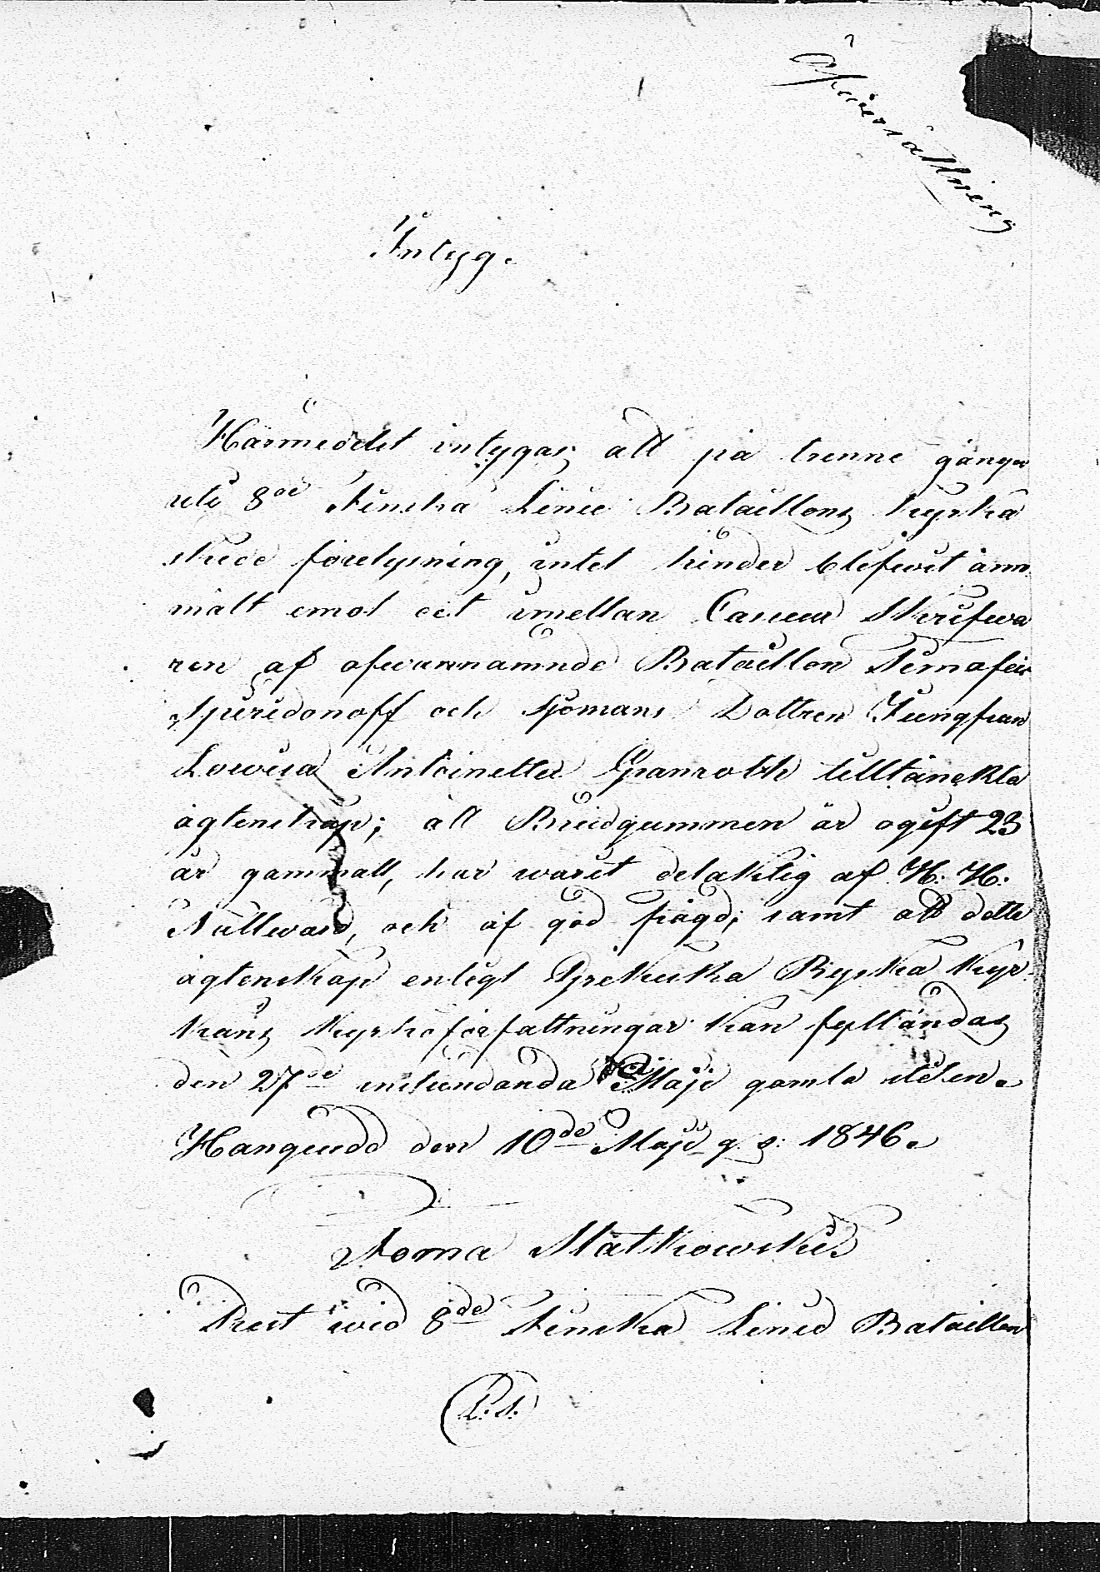 Öfwersättning
Intyg.
Härmedelst intygas, att på trenne gånger
uti 8de Finska Linie Bataillons Kyrka
skedd förelysning, intet hinder blefwit anm
mält emot ett imellan Skrifwa
ren af ofwannamnde Bataillon
Spiridonoff och Sjömans Dottren Jungfrun
Lowisa Antoinetta Granroth tilltänckta
ägtenskap; att Brudgummen är ogift 23
år gammall, har warit delaktig af H. H.
Nattward, och af god frägd; samt att detta
ägtenskap enligt Grekiska Ryska Kyr
kans Kyrkoförfattningar kan fylländas
den 27de instundanda Maji gamla stilen.
Hangöudd den 10de Maji g. s: 1846.
Foma Matkowskij
Prest wid 8de Finska Linie Bataillon
(L.S.)